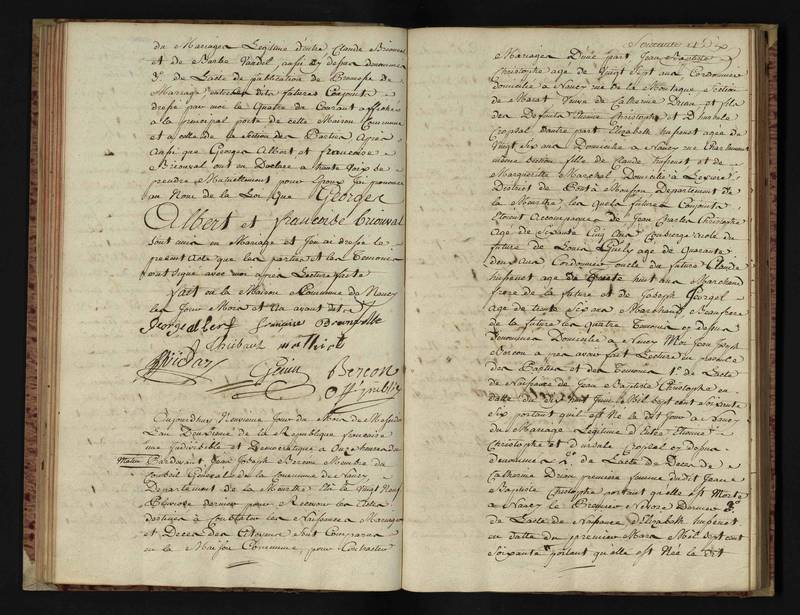 du Mariage Legitime d'entre Claude Brionval
et de Barbe Vardel aussi cy dessus denommes
3o. de L'acte de publication de Promesse de
Mariage entre les dits futurs Conjoints
dressé par moi le Quatre du Courant affiché
a la principal porte de cette Maison Commune
et a celle de la Section des Parties Après
aussi que Georges Albert et francoise
Brionval ont eu Declaré a haute Voix se
prendre Mutuellement pour Epoux J'ai prononcé
au Nom de la Loi que Georges
Albert et francoise Brionval
sont unis en Mariage et J'en ai dressé le
présent acte que les parties et les Temoins
ont signé avec moi après Lecture faite
fait en la Maison Commune de Nancy
les Jour Mois et An avant dits
George albert francoise Brionvalle
Thiebaut mathieu
Bercon
Off. public
Aujourdhui Neuvieme Jour du Mois de Messidor
L'an Deuxieme de la Republique françoise
une Indivisible et Democratique a Onze heures du
Matin Pardevant Jean Joseph Bercon Membre du
Conseil General de la Commune de Nancy
Departement de la Meurthe Elû le Vingt Neuf
Pluviose dernier pour Recevoir les Actes
destinés a Constater les Naissances Mariages
et Deces des Citoyens sont Comparus
en la Maison Commune, pour Contracter
Soixante
Mariage D'une part Jean Baptiste
Christophe agé de Vingt Sept ans Cordonnier
domicilié a Nancy rue de la Montagne Section
de Marat Veuf de Catherine Drian et fils
des Defunts Etienne Christophe et D'ursule
Cropsal D'autre part Elizabeth hupenot agée de
Vingt Six ans Domiciliée a Nancy rue
même Section fille de Claude hupenot et de
Marguerite Marchal Domiciliés a
District de Pont a Mousson Departement de
la Meurthe les quels futurs Conjoints
Etoient Accompagnés de Jean Charles Christophe
Agé de Soixante Cinq ans Concierge oncle du
futur de Louis agé de Quarante
deux ans Cordonnier oncle du futur Claude
hupenot agé de huit ans Marchand
frere de la future et de Joseph Georgel
agé de trente Six ans Marchand Beaufrere
de la future les Quatre Temoins cy dessus
denommés Domiciliés a Nancy Moi Jean Joseph
Bercon a pres avoir fait Lecture en presence
des Parties et des Temoins 1o. de L'acte
de Naissance de Jean Baptiste Christophe en
datte du dix huit Juin Mil Sept cent Soixante
Six portant qu'il est Né le dit Jour a Nancy
du Mariage Legitime d'Entre Etienne
Christophe et d'ursule Cropsal cy dessus
denommés 2o. de L'acte de Deces de
Catherine Drian premiere femme dudit Jean
Baptiste Christophe portant qu'elle est Morte
a Nancy le Premier Nivose Dernier 3o.
de L'acte de Naissance d'Elizabeth hupenot
en datte du premier Mars Mil Sept cent
Soixante portant qu'elle est Née le dit